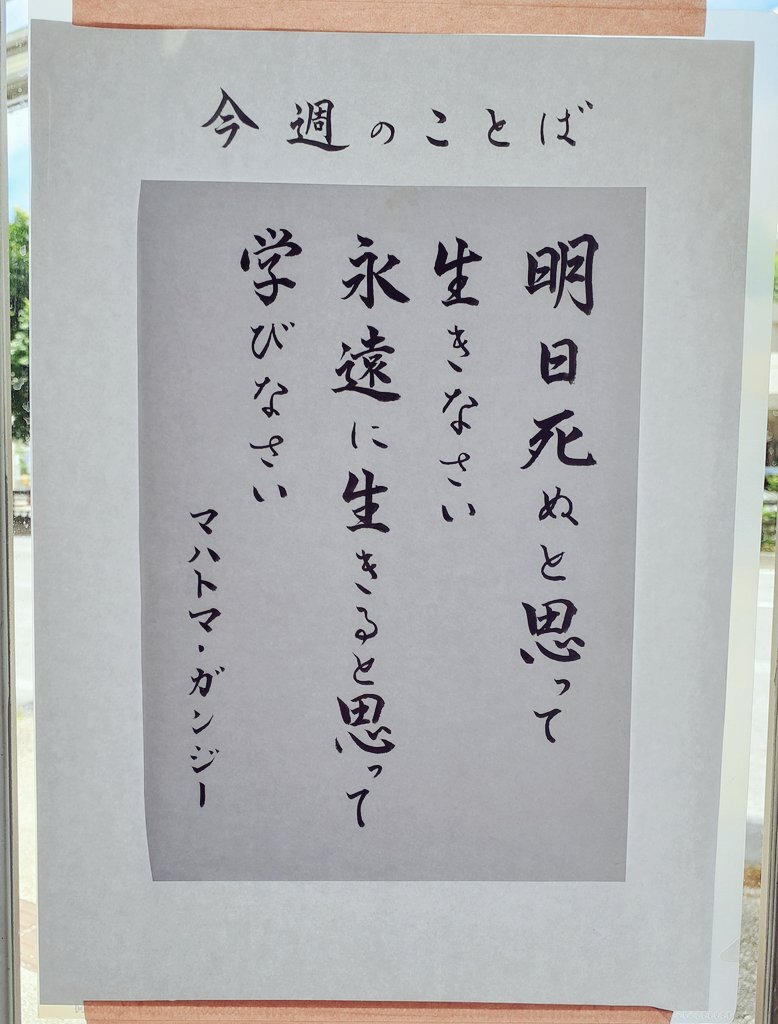 今週のことば
明日死ぬと思って
生きなさい
永遠に生きると思って
学びなさい
マハトマ・ガンジー